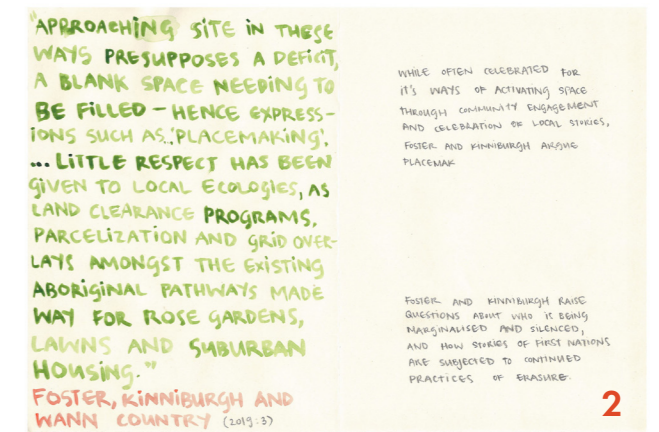 "APPROACHING SITE IN THESE
WAYS PRESUPPOSES A DEFICIT,
A BLANK SPACE NEEDING TO
BE FILLED – HENCE EXPRESS-
IONS SUCH AS 'PLACEMAKING'.
... LITTLE RESPECT HAS BEEN
GIVEN TO LOCAL ECOLOGIES, AS
LAND CLEARANCE PROGRAMS,
PARCELIZATION AND GRID OVER-
LAYS AMONGST THE EXISTING
ABORIGINAL PATHWAYS MADE
WAY FOR ROSE GARDENS,
LAWNS AND SUBURBAN
HOUSING."
FOSTER, KINNIBURGH AND
WANN COUNTRY (2019:3)
WHILE OFTEN CELEBRATED FOR
IT'S WAYS OF ACTIVATING SPACE
THROUGH COMMUNITY ENGAGEMENT
AND CELEBRATION OF LOCAL STORIES,
FOSTER AND KINNIBURGH ARGUE
PLACEMAK
FOSTER AND KINNIBURGH RAISE
QUESTIONS ABOUT WHO IS BEING
MARGINALISED AND SILENCED,
AND HOW STORIES OF FIRST NATIONS
ARE SUBJECTED TO CONTINUED
PRACTICES OF ERASURE.
2